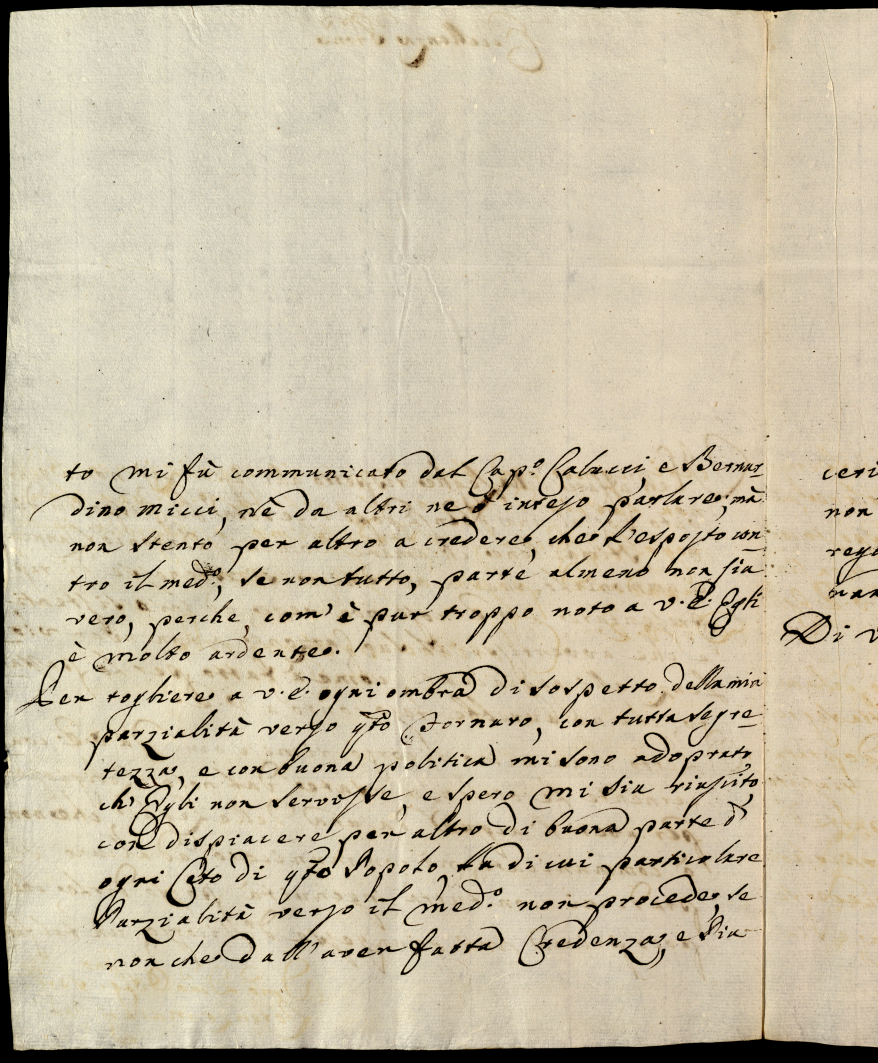 to mi fù communicato dal Cap.º Calucci e Bernar-
dino micci, nè da altri ne ò inteso parlare; mà
non stento per altro a credere, che l'esposto con-
tro il med.º, se non tutto, parte almeno non sia
vero, perche, com'è pur troppo noto a v. E. Egli
è molto ardente.
Per togliere a v. E. ogni ombra di sospetto della mia
parzialità verso q̃to Fornaro, con tutta segre-
tezza, e con buona politica mi sono adoprato
ch'Egli non servisse, e spero mi sia riuscito,
con dispiacere per altro di buona parte d'
ogni Ceto di q̃to Popolo, la di cui particolare
Parzialità verso il med.º non procede, se
non che dall'aver fatta Credenza, e Pia-
ceri
non
rego
nar
Di v